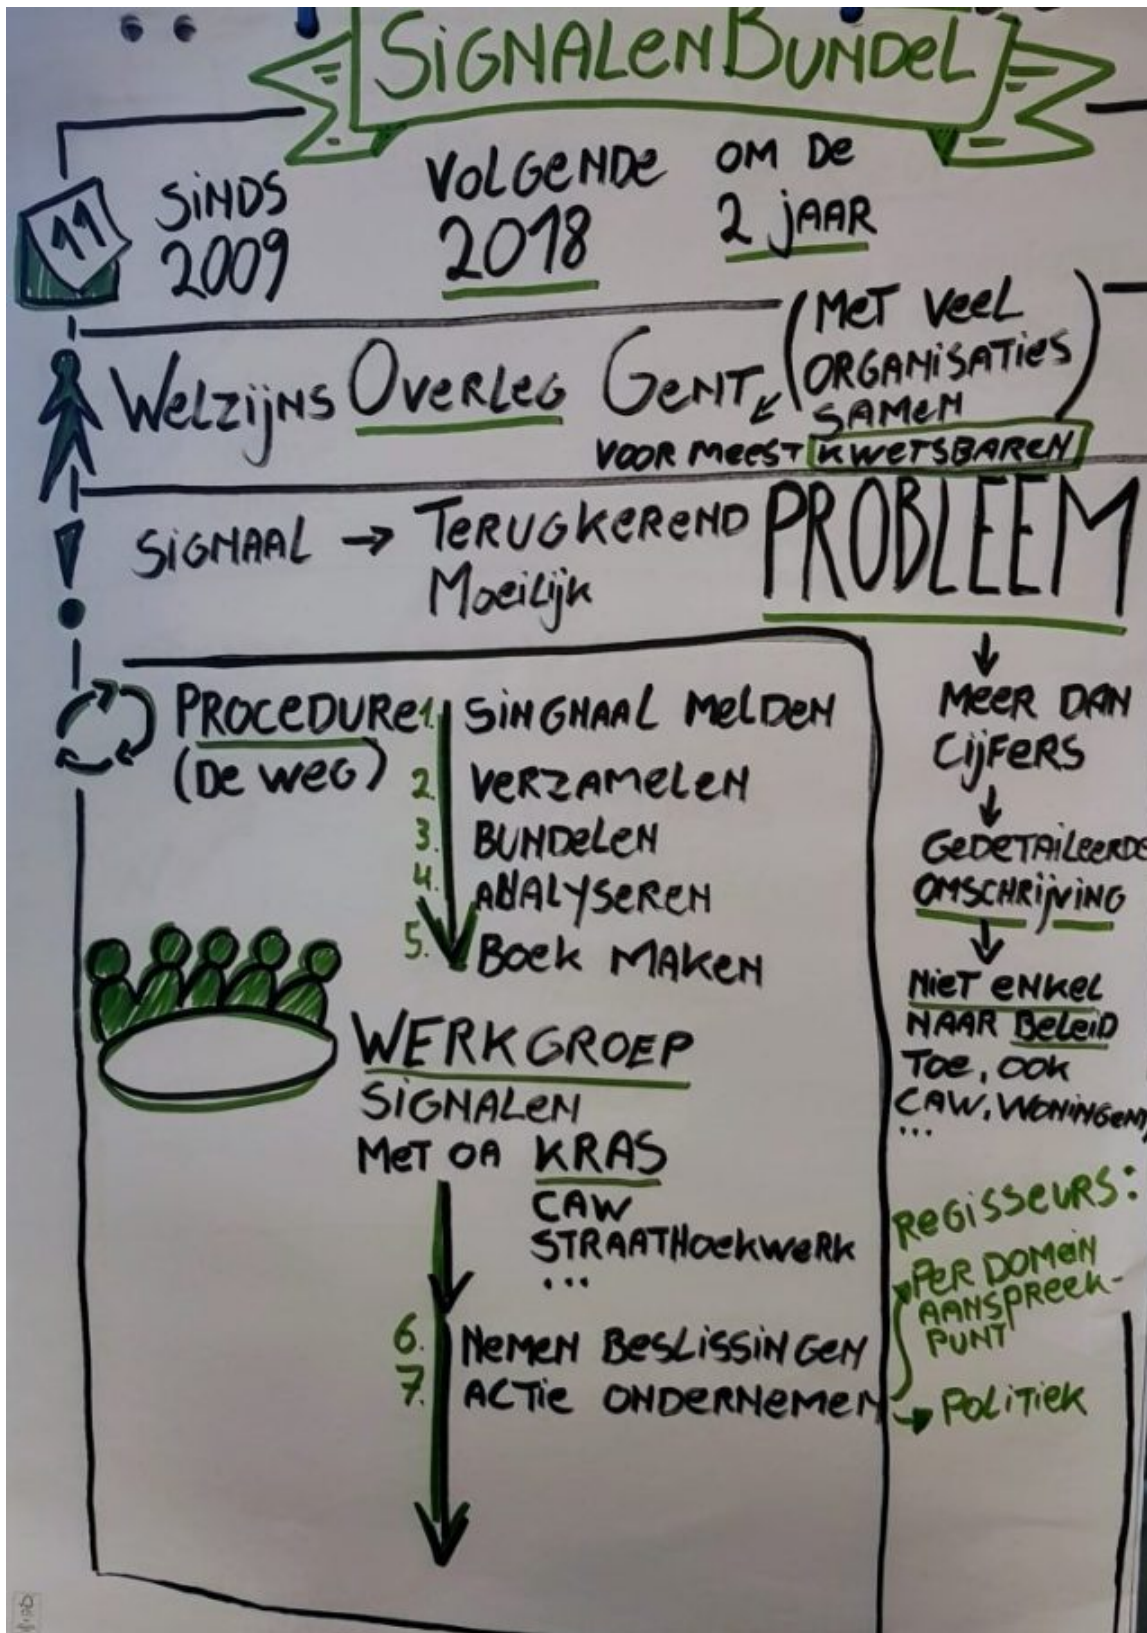 SIGNALENBUNDEL
11
SINDS
2009
VOLGENDE
2018
OM DE
2 JAAR
WELZIJNS OVERLEG GENT
(MET VEEL
ORGANISATIES
SAMEN)
VOOR MEEST KWETSBAREN
SIGNAAL → TERUGKEREND PROBLEEM
MOEILIJK
PROCEDURE
(DE WEG)
1. SINGNAAL MELDEN
2. VERZAMELEN
3. BUNDELEN
4. ANALYSEREN
5. BOEK MAKEN
WERKGROEP
SIGNALEN
MET OA KRAS
CAW
STRAATHOEKWERK
...
6. NEMEN BESLISSINGEN
7. ACTIE ONDERNEMEN
↓
MEER DAN
CIJFERS
↓
GEDETAILEERDE
OMSCHRIJVING
↓
NIET ENKEL
NAAR BELEID
TOE, OOK
CAW, WONINGENT,
...
REGISSEURS:
PER DOMEIN
AANSPREEK-
PUNT
→ POLITIEK